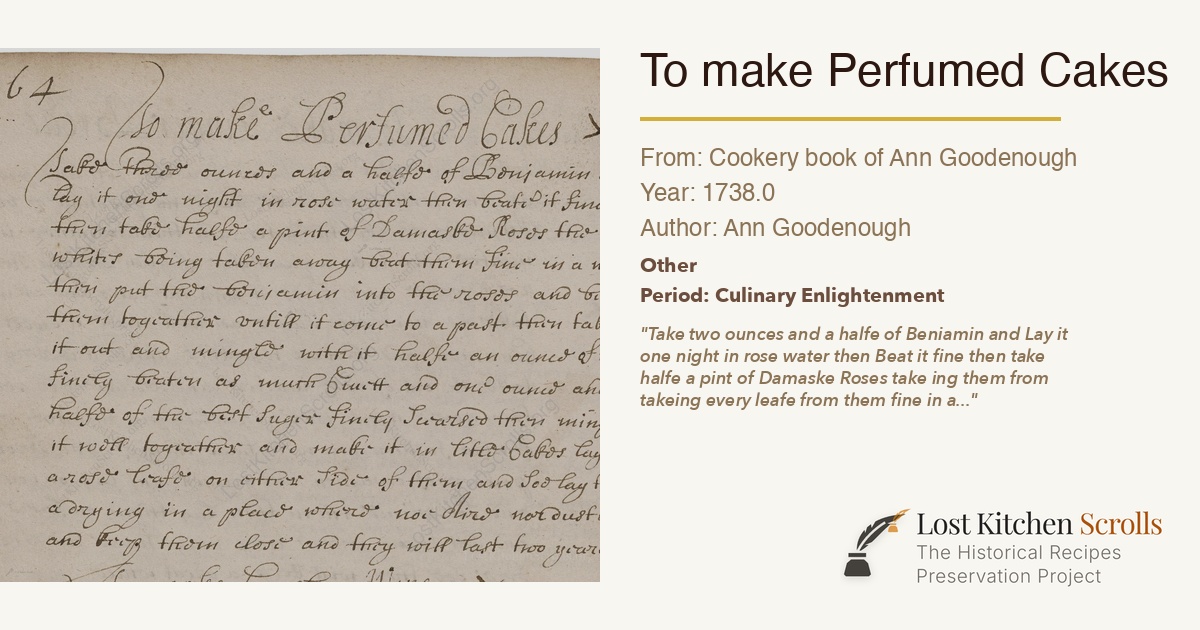 64
To make Perfumed Cakes
Take three ounces and a halfe of Benjamin
lay it one night in rose water then beate it fine
then take halfe a pint of Damaske Roses the
whites being taken away beat them fine in a
then put the benjamin into the roses and
them togeather untill it come to a past then
it out and mingle with it halfe an ounce of
finely beaten as much Civett and one ounce and
halfe of the best Suger finely Scearsed then
it well togeather and make it in little Cakes lay
a rose leafe on either Side of them and Soe lay
a drying in a place where noe Aire nor dust
and keep them close and they will last two
To make Perfumed Cakes
From: Cookery book of Ann Goodenough
Year: 1738.0
Author: Ann Goodenough
Other
Period: Culinary Enlightenment
"Take two ounces and a halfe of Beniamin and Lay it
one night in rose water then Beat it fine then take
halfe a pint of Damaske Roses take ing them from
takeing every leafe from them fine in a..."
Lost Kitchen Scrolls
The Historical Recipes
Preservation Project